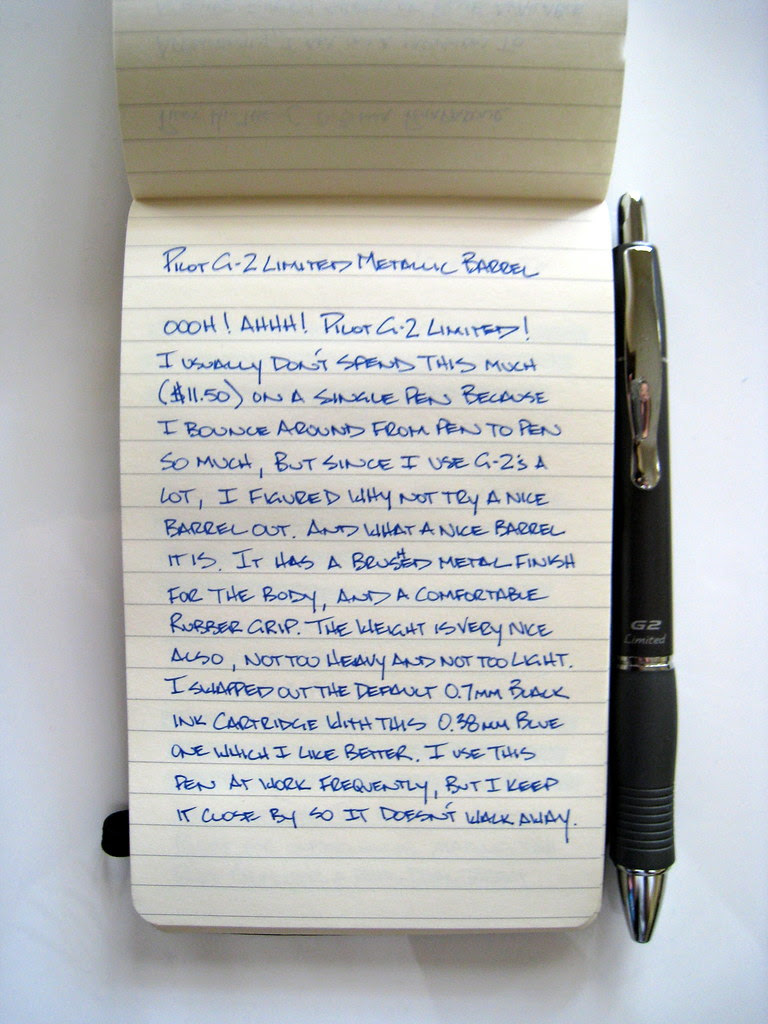 PILOT G-2 LIMITED METALLIC BARREL
OOOH! AHHH! PILOT G-2 LIMITED!
I USUALLY DON'T SPEND THIS MUCH
($11.50) ON A SINGLE PEN BECAUSE
I BOUNCE AROUND FROM PEN TO PEN
SO MUCH, BUT SINCE I USE G-2'S A
LOT, I FIGURED WHY NOT TRY A NICE
BARREL OUT. AND WHAT A NICE BARREL
IT IS. IT HAS A BRUSHED METAL FINISH
FOR THE BODY, AND A COMFORTABLE
RUBBER GRIP. THE WEIGHT IS VERY NICE
ALSO, NOT TOO HEAVY AND NOT TOO LIGHT.
I SWAPPED OUT THE DEFAULT 0.7MM BLACK
INK CARTRIDGE WITH THIS 0.38MM BLUE
ONE WHICH I LIKE BETTER. I USE THIS
PEN AT WORK FREQUENTLY, BUT I KEEP
IT CLOSE BY SO IT DOESN'T WALK AWAY.
G2
Limited